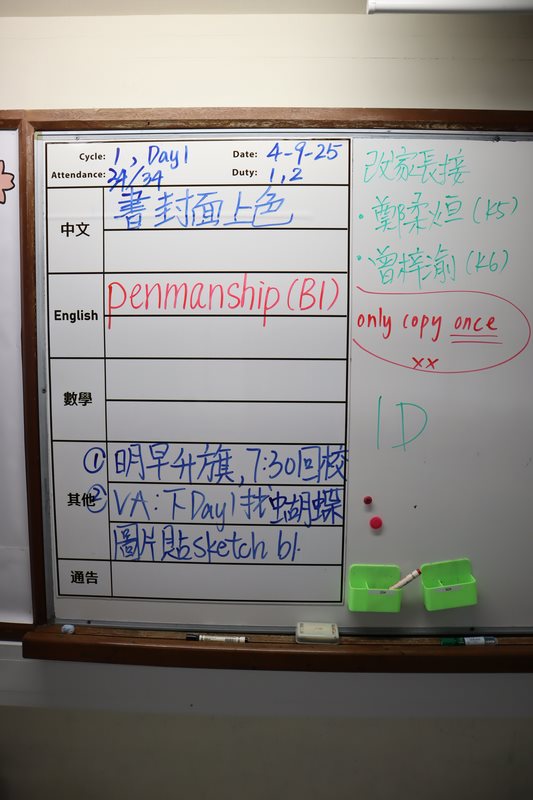 Cycle: 1, Day1 Date: 4-9-25
Attendance: 34/34 Duty: 1,2
中文 書封面上色
English penmanship (B1)
數學
其他 ① 明早升旗, 7:30回校
② VA: 下Day1找蝴蝶
圖片貼sketch bk
通告
改家長接
·鄭柔烜 (K5)
·曾梓渝 (K6)
only copy once
xx
1D